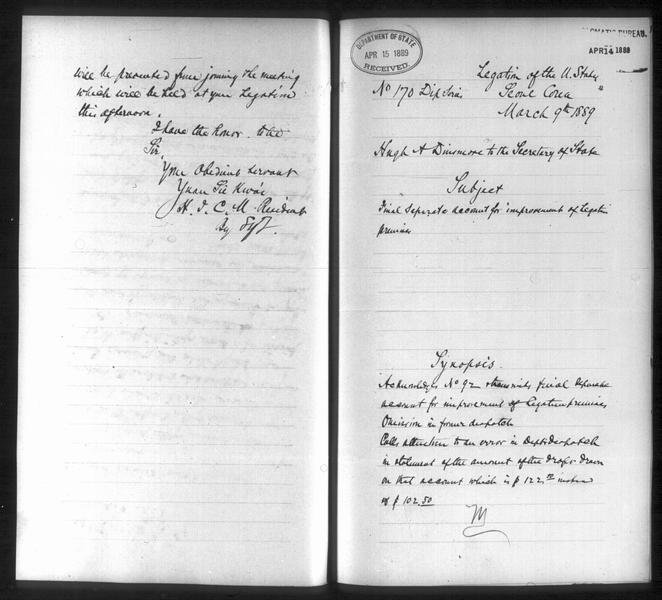 will be presented from joining the meeting
which will be held at your Legation
this afternoon.
I have the honor to be
Sir,
Your Obedient servant
Yuan Sie Kwai
H. I. C. M. Resident
By
DEPARTMENT OF STATE
APR 15 1889
RECEIVED.
BUREAU.
APR 14 1889
Legation of the U. States
No 170 Dip. Series
Seoul Corea
March 9th 1889
Hugh A Dinsmore to the Secretary of State
Subject
Final separate account for improvement of Legation
premises
Synopsis.
Acknowledges No 92 & transmits final separate
account for improvement of Legation premises
Omission in former despatch
Calls attention to an error in Depts despatch
in statement of the amount of the drafts drawn
on that account which is $ 122.50 instead
of $ 102.50